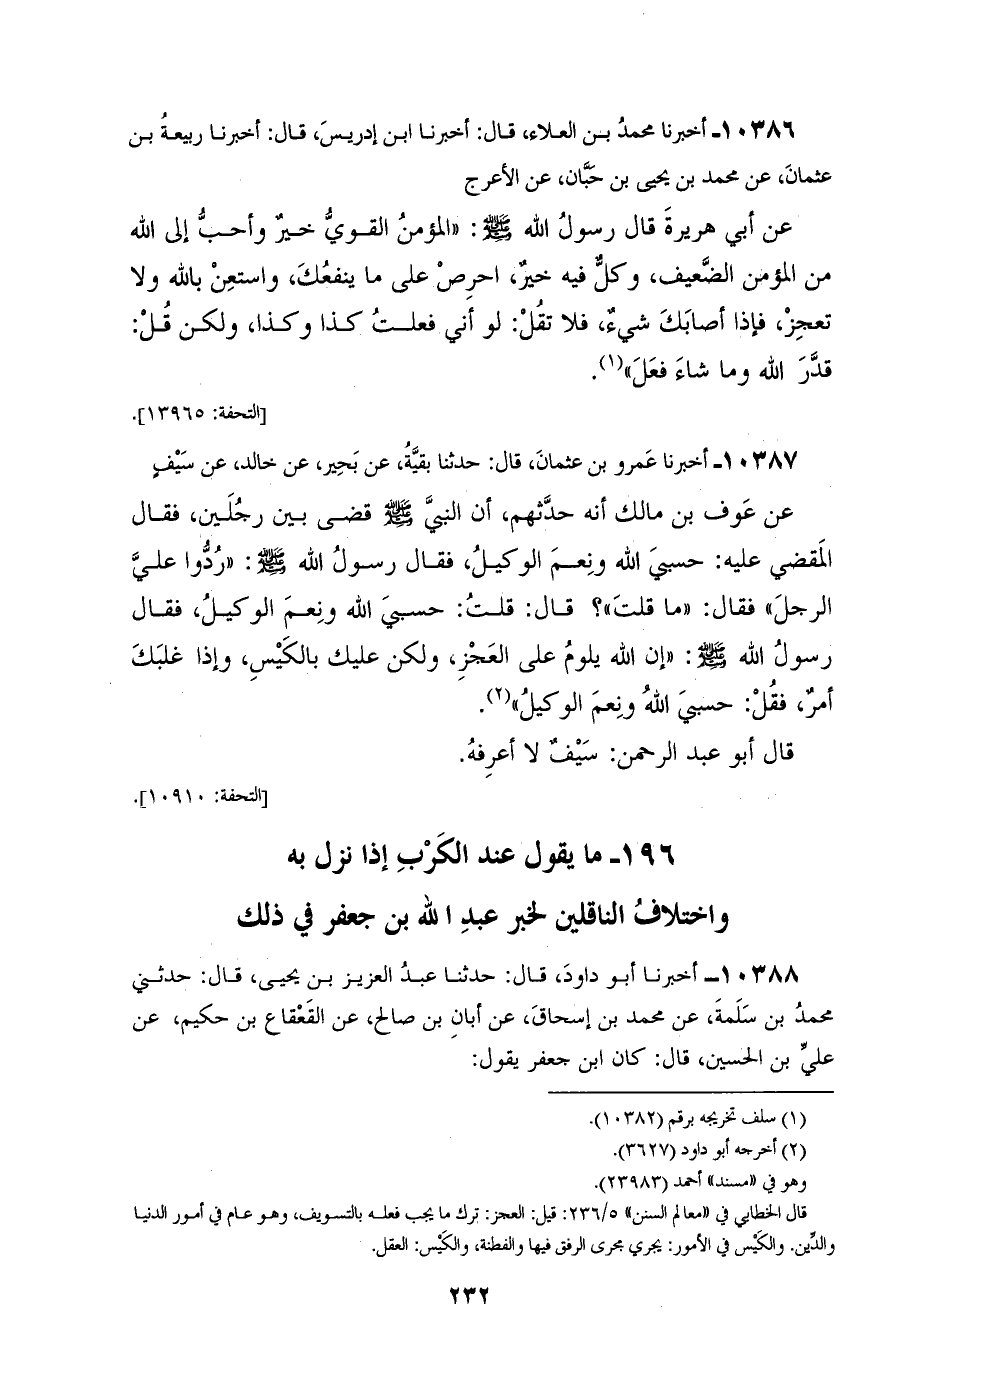 ١٠٣٨٦ـ أخبرنا محمدُ بن العلاء، قال: أخبرنا ابن إدريسَ، قال: أخبرنا ربيعةُ بن
عثمانَ، عن محمد بن يحيى بن حَبَّان، عن الأعرج
عن أبي هريرةَ قال رسولُ الله ﷺ: «المؤمنُ القويُّ خيرٌ وأحبُّ إلى الله
من المؤمن الضَّعيف، وكلٌّ فيه خيرٌ، احرِصْ على ما ينفعُكَ، واستعِنْ بالله ولا
تعجِزْ، فإذا أصابَكَ شيءٌ، فلا تقُلْ: لو أني فعلتُ كذا وكذا، ولكن قُلْ:
قدَّرَ الله وما شاءَ فعَلَ»(١).
[التحفة: ١٣٩٦٥].
١٠٣٨٧ـ أخبرنا عَمرو بن عثمانَ، قال: حدثنا بقيَّةُ، عن بَحِير، عن خالد، عن سَيْفٍ
عن عَوف بن مالك أنه حدَّثهم، أن النبيَّ ﷺ قضى بين رجُلَين، فقال
المَقضي عليه: حسبيَ الله ونِعمَ الوكيلُ، فقال رسولُ الله ﷺ: «رُدُّوا عليَّ
الرجلَ» فقال: «ما قلتَ»؟ قال: قلتُ: حسبيَ الله ونِعمَ الوكيلُ، فقال
رسولُ الله ﷺ: «إن الله يلومُ على العَجْزِ، ولكن عليك بالكَيْسِ، وإذا غلبَكَ
أمرٌ، فقُلْ: حسبيَ اللهُ ونِعمَ الوكيلُ»(٢).
قال أبو عبد الرحمن: سَيْفٌ لا أعرِفهُ.
[التحفة: ١٠٩١٠].
١٩٦ـ ما يقول عند الكَرْبِ إذا نزل به
واختلافُ الناقلين لخبر عبدِ الله بن جعفر في ذلك
١٠٣٨٨ـ أخبرنا أبو داودَ، قال: حدثنا عبدُ العزيز بن يحيى، قال: حدثني
محمدُ بن سَلَمةَ، عن محمد بن إسحاقَ، عن أبانِ بن صالح، عن القَعْقاع بن حكيم، عن
عليِّ بن الحسين، قال: كان ابن جعفر يقول:
(١) سلف تخريجه برقم (١٠٣٨٢).
(٢) أخرجه أبو داود (٣٦٢٧).
وهو في «مسند» أحمد (٢٣٩٨٣).
قال الخطابي في «معالم السنن» ٢٣٦/٥: قيل: العجز: ترك ما يجب فعله بالتسويف، وهو عام في أمور الدنيا
والدِّين. والكَيْس في الأمور: يجري مجرى الرفق فيها والفطنة، والكَيْس: العقل.
٢٣٢